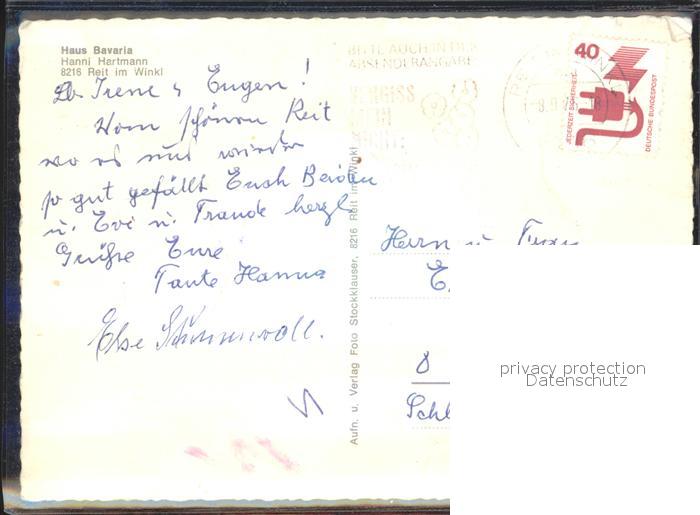 Haus Bavaria
Hanni Hartmann
8216 Reit im Winkl
Lb. Irene u Eugen!
Vom schönen Reit
wo es uns wieder
so gut gefällt Euch Beiden
u. Evi u. Traude herzl.
Grüße Eure
Tante Hanna
Else
BITTE AUCH IN DER
ABSENDERANGABE
VERGISS
40
JEDERZEIT SICHERHEIT
DEUTSCHE BUNDESPOST
Aufn. u. Verlag Foto Stockklauser, 8216 Reit im Winkl
Herrn u
E.
8
Schl
privacy protection
Datenschutz